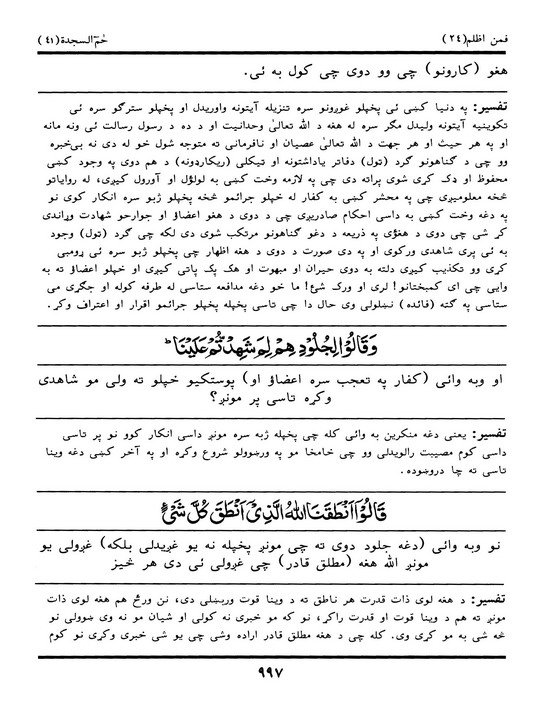 فمن اظلم(٢٤)
حٰمٓ السجدة(٤١)
هغو (کارونو) چی وو دوی چی کول به ئی.
تفسیر: په دنیا کښی ئی پخپلو غوږونو سره تنزیله آیتونه واوریدل او پخپلو سترګو سره ئی
تکوینیه آیتونه ولیدل مګر سره له هغه د الله تعالیٰ وحدانیت او د ده د رسول رسالت ئی ونه مانه
او په هر حیث او هر جهت د الله تعالیٰ عصیان او نافرمانی ته متوجه شول خو له دی نه بی‌خبره
وو چی د گناهونو گرد (تول) دفاتر یاداشتونه او تیکلی (ریکاردونه) د هم دوی په وجود کښی
محفوظ او ډک کړی شوی پراته دی چی په لازمه وخت کښی به لولؤل او آورول کیږی، له روایاتو
څخه معلومیږی چی په محشر کښی به کفار له خپلو جرائمو څخه پخپلو ژبو سره انکار کوی نو
په دغه وخت کښی به داسی احکام صادریږی چی د دوی د هغو اعضاؤ او جوارحو شهادت وړاندی
کړ شی چی دوی د هغؤی په ذریعه د دغو گناهونو مرتکب شوی دی لکه چی گرد (تول) وجود
به ئی پری شاهدی ورکوی او په دی صورت د دوی د هغه اظهار چی پخپلو ژبو سره ئی ړومبی
کړی وو تکذیب کیږی دلته به دوی حیران او مبهوت او هک پک پاتی کیږی او خپلو اعضاؤ ته به
وایی چی ای کمبختانو! لری او ورک شئ! ما خو دغه مدافعه ستاسی له طرفه کوله او جگړی می
ستاسی په گته (فائده) نښلولی وی حال دا چی تاسی پخپله پخپلو جرائمو اقرار او اعتراف وکړ.
وَقَالُوْا لِجُلُوْدِهِمْ لِمَ شَهِدْتُّمْ عَلَيْنَا ؕ
او وبه وائی (کفار په تعجب سره اعضاؤ او) پوستکیو خپلو ته ولی مو شاهدی
وکړه تاسی پر مونږ؟
تفسیر: یعنی دغه منکرین به وائی کله چی پخپله ژبه سره مونږ داسی انکار کوو نو پر تاسی
داسی کوم مصیبت رالویدلی وو چی خامخا مو په ورښوولو شروع وکړه او په آخر کښی دغه وینا
تاسی ته چا دروښوده.
قَالُوْٓا اَنْطَقَنَا اللّٰهُ الَّذِيْٓ اَنْطَقَ كُلَّ شَيْءٍ
نو وبه وائی (دغه جلود دوی ته چی مونږ پخپله نه یو غږیدلی بلکه) غږولی یو
مونږ الله هغه (مطلق قادر) چی غږولی ئی دی هر څیز
تفسیر: د هغه لوی ذات قدرت هر ناطق ته د وینا قوت وربښلی دی، نن ورځ هم هغه لوی ذات
مونږ ته هم د وینا قوت او قدرت راکړ، نو که مو خبری نه کولی او شیان مو نه وی ښوولی نو
څه شی به مو کړی وی. کله چی د هغه مطلق قادر اراده وشی چی یو شی خبری وکړی نو کوم
٩٩٧